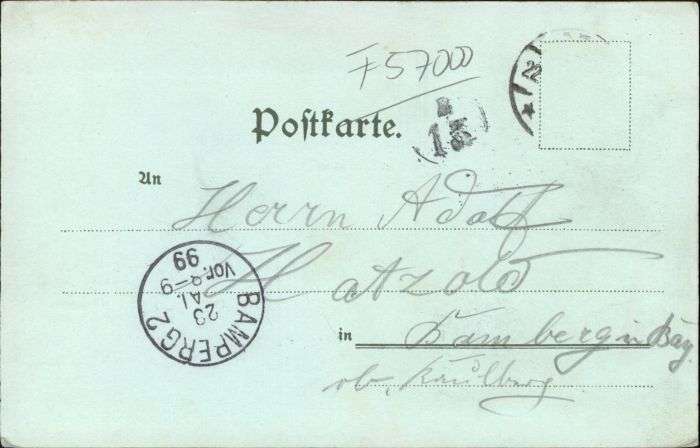 F57000
Postkarte.
15
An
Herrn Adolf
Hatzold
in Bamberg in Bay.
ob. Kaulberg
BAMBERG 2
23
Vor. 8-9
99